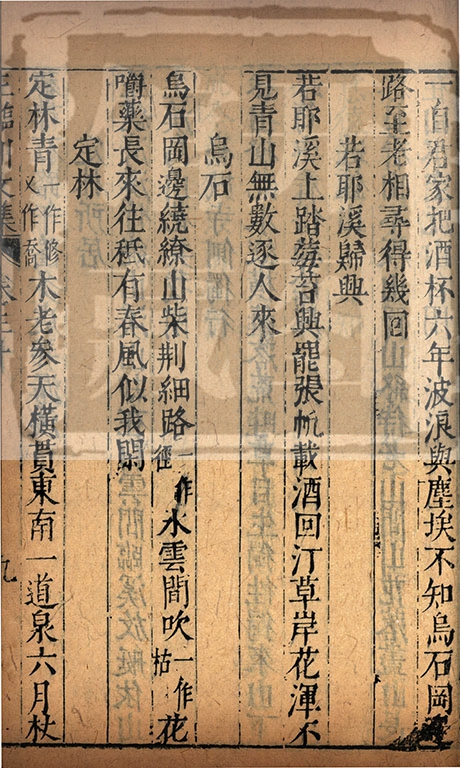 一自君家把酒杯六年波浪與塵埃不知烏石岡
路至老相尋得幾回
若耶溪歸興
若耶溪上踏莓苔興罷張帆載酒回汀草岸花渾不
見青山無數逐人來
烏石
烏石岡邊繞繚山柴荆細路一作徑水雲間吹一作枯花
嚼藥長來往秪有春風似我閑
定林
定林青一作修又作喬木老參天橫貫東南一道泉六月杖
王臨川文集 卷三十 九